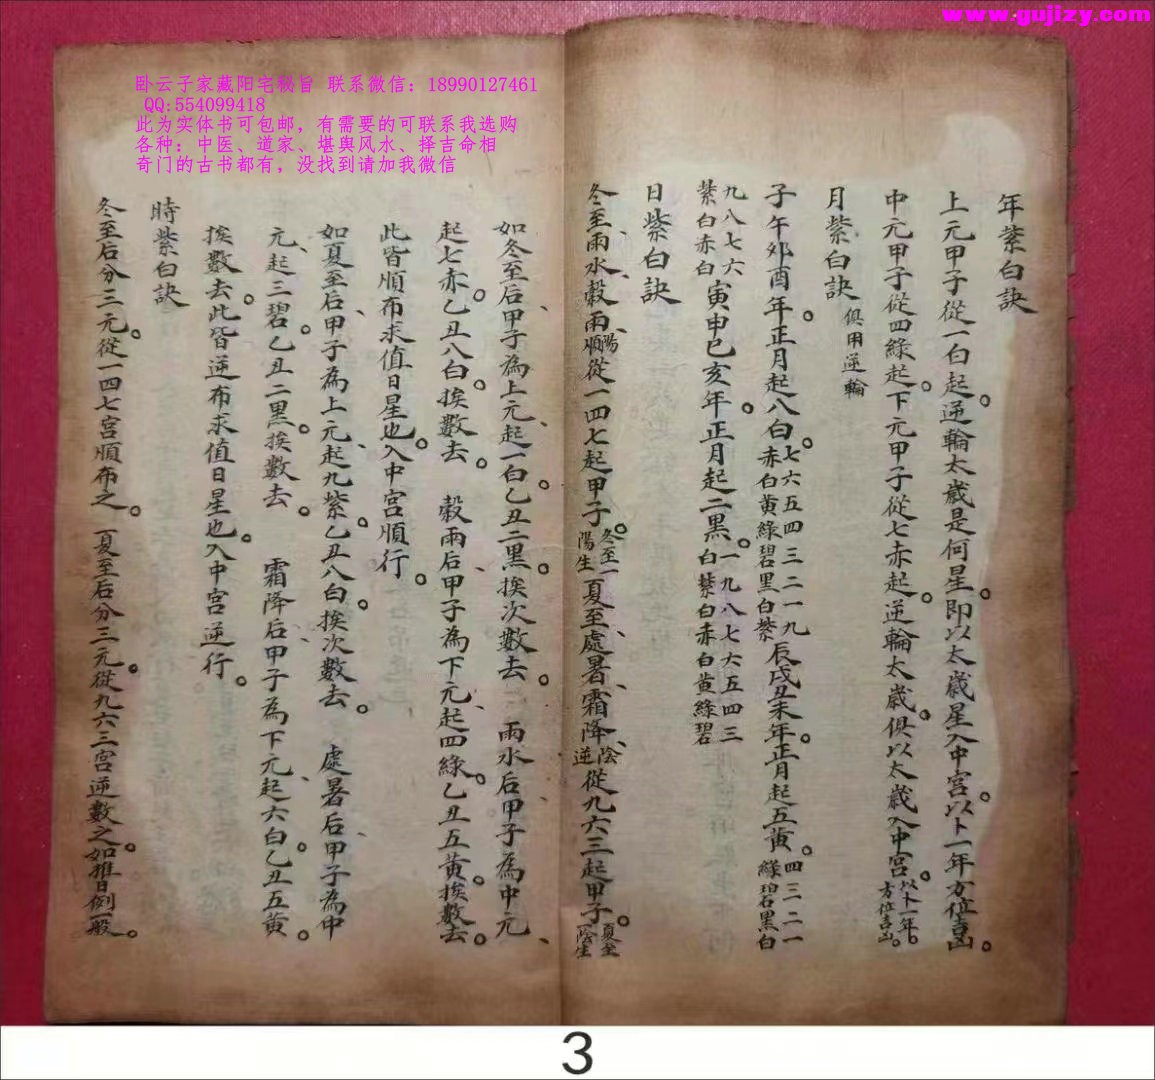 www.gujizy.com
卧云子家藏阳宅秘旨 联系微信：18990127461
QQ:554099418
此为实体书可包邮，有需要的可联系我选购
各种：中医、道家、堪舆风水、择吉命相
奇门的古书都有，没找到请加我微信
年紫白訣
上元甲子從一白起。逆輪太歲是何星。即以太歲星入中宮。以卜一年方位吉凶。
中元甲子從四綠起。下元甲子從七赤起。逆輪太歲。俱以太歲入中宮。以卜一年。方位吉凶。
月紫白訣 俱用逆輪
子午夘酉年。正月起八白。七六五四三二一九 赤白黃綠碧黑白紫 辰戌丑未年。正月起五黃。四三二一 綠碧黑白
九八七六 紫白赤白 寅申巳亥年。正月起二黑。一九八七六五四三 白紫白赤白黃綠碧
日紫白訣
冬至、雨水、穀雨、陽順從一四七起甲子。冬至一陽生 夏至、處暑、霜降、陰逆從九六三起甲子。夏至一陰生
如冬至后、甲子為上元、起一白。乙丑二黑。挨次數去。 雨水后、甲子為中元、
起七赤。乙丑八白。挨數去。 穀雨后、甲子為下元、起四綠。乙丑五黃。挨數去。
此皆順布求值日星也。入中宮順行。
如夏至后、甲子為上元、起九紫。乙丑八白。挨次數去。 處暑后、甲子為中
元、起三碧。乙丑二黑。挨數去。 霜降后、甲子為下元、起六白。乙丑五黃。
挨數去。此皆逆布求值日星也。入中宮逆行。
時紫白訣
冬至后分三元。從一四七宮順布之。夏至后分三元。從九六三宮逆數之。如推日例一般。
3